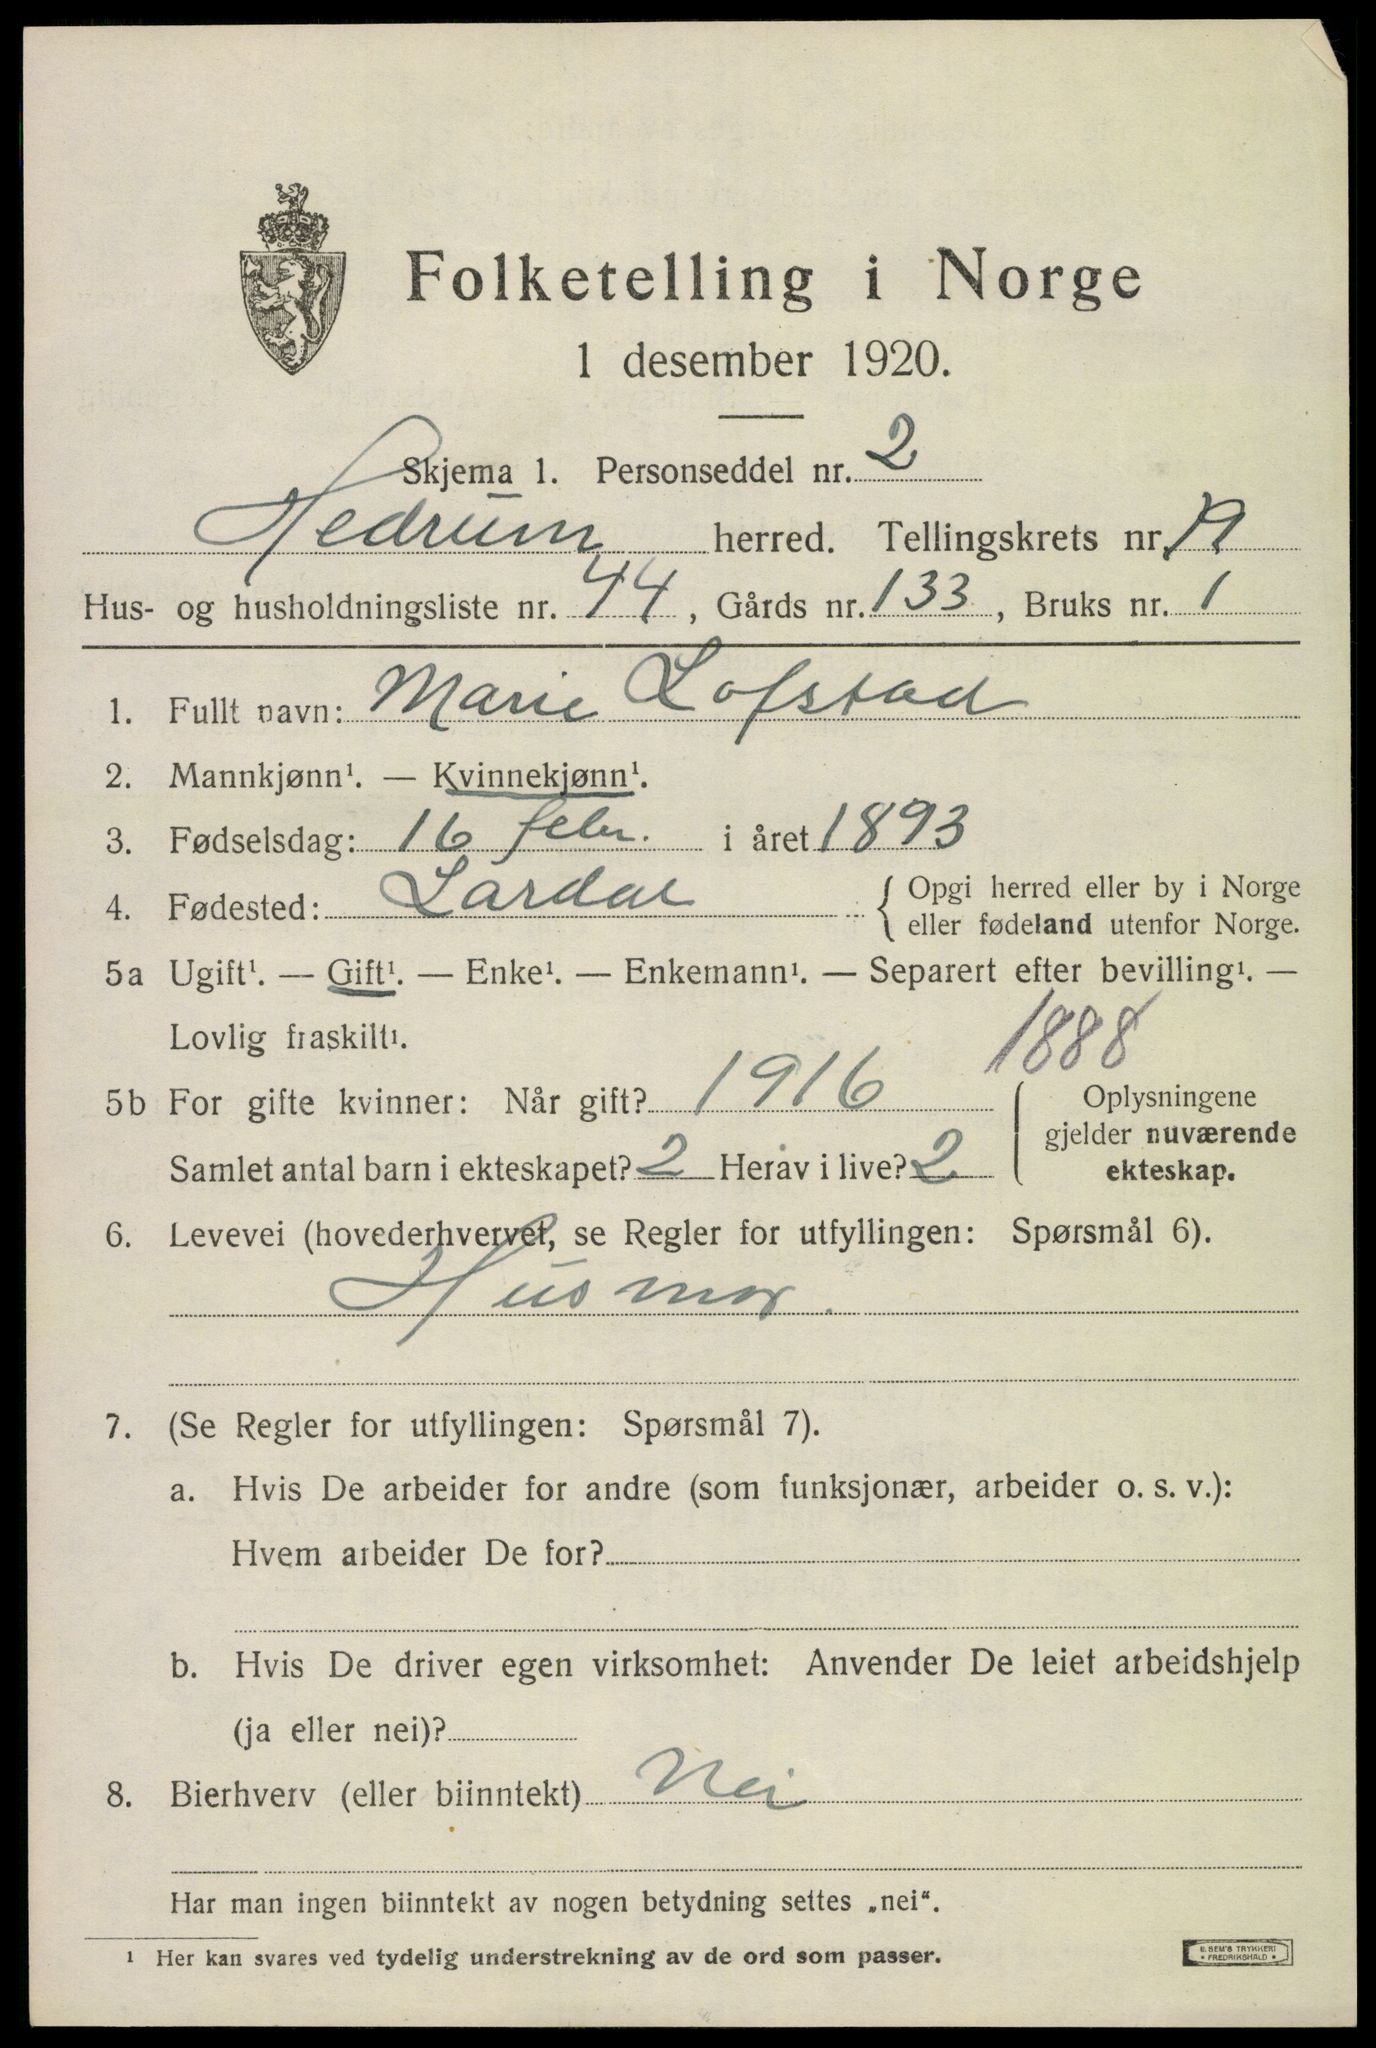 Folketelling i Norge
1 desember 1920.
Skjema 1. Personseddel nr. 2
Hedrum herred. Tellingskrets nr.
Hus- og husholdningsliste nr. 44, Gårds nr. 133, Bruks nr. 1
1. Fullt navn: Marie Lofstad
2. Mannkjønn¹. — Kvinnekjønn¹.
3. Fødselsdag: 16 febr. i året 1893
4. Fødested: Lardal { Opgi herred eller by i Norge
eller fødeland utenfor Norge.
5a Ugift¹. — Gift¹. — Enke¹. — Enkemann¹. — Separert efter bevilling¹. —
Lovlig fraskilt¹.
1888
5b For gifte kvinner: Når gift? 1916
Samlet antal barn i ekteskapet? 2 Herav i live? 2
Oplysningene
gjelder nuværende
ekteskap.
6. Levevei (hovederhvervet, se Regler for utfyllingen: Spørsmål 6).
Husmor.
7. (Se Regler for utfyllingen: Spørsmål 7).
a. Hvis De arbeider for andre (som funksjonær, arbeider o. s. v.):
Hvem arbeider De for?
b. Hvis De driver egen virksomhet: Anvender De leiet arbeidshjelp
(ja eller nei)?
8. Bierhverv (eller biinntekt) Nei
Har man ingen biinntekt av nogen betydning settes „nei“.
¹ Her kan svares ved tydelig understrekning av de ord som passer.
E. SEM'S TRYKKERI
• FREDRIKSHALD •